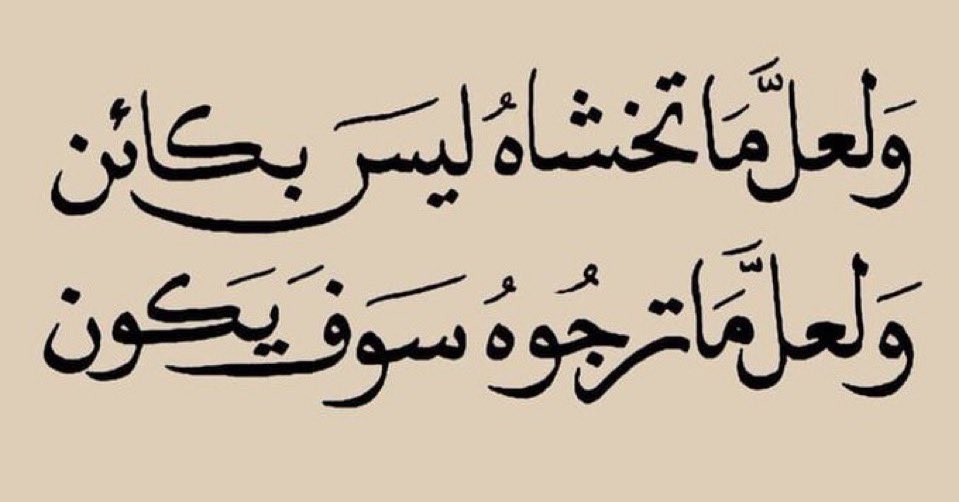 وَلعلَّ مَا تخشاهُ ليسَ بكائن
وَلعلَّ مَا ترجُوهُ سَوفَ يَكون